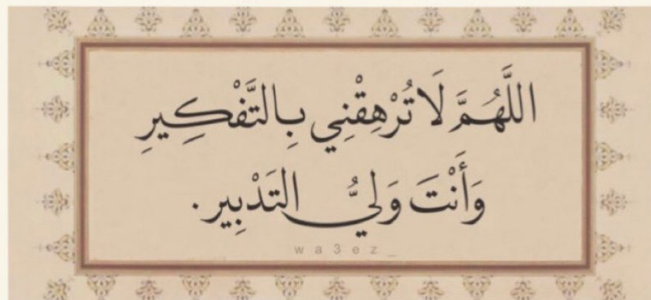 اللَّهُمَّ لَا تُرْهِقْنِي بِالتَّفْكِيرِ
وَأَنْتَ وَلِيُّ التَدْبِير.
wa3ez_